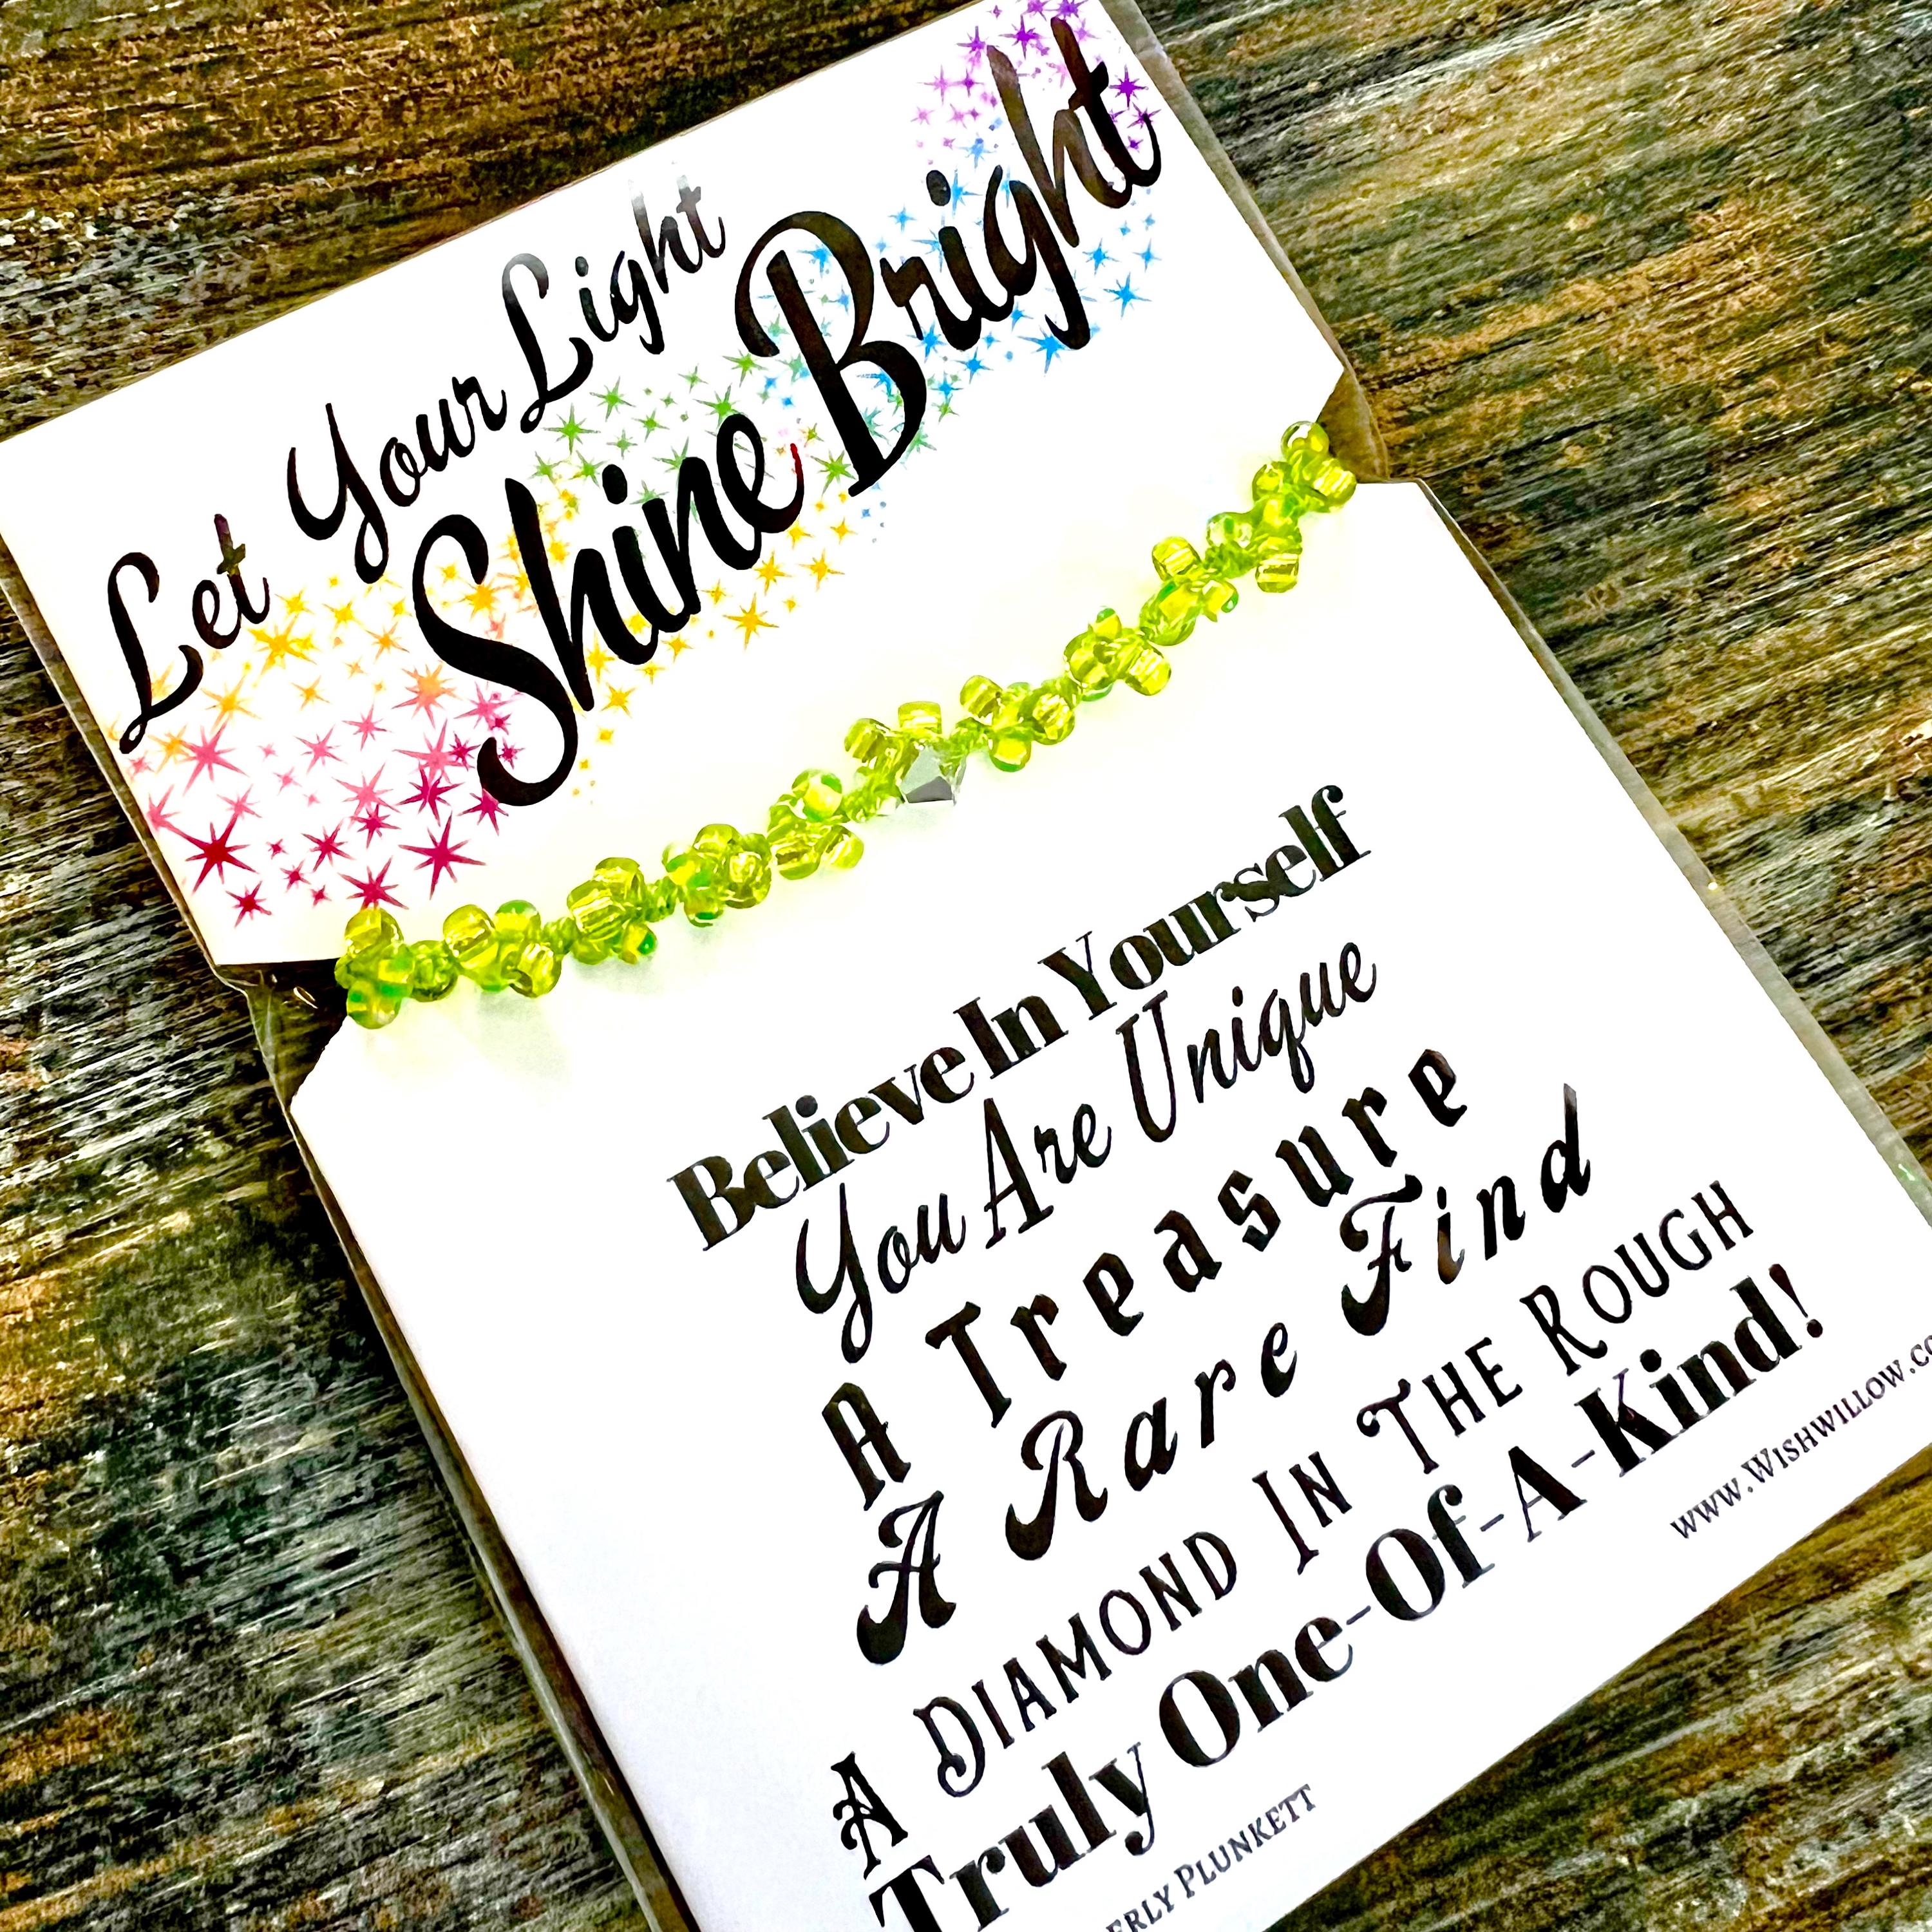 Let Your Light
Shine Bright
Believe In Yourself
You Are Unique
A Treasure
A Rare Find
A DIAMOND IN THE ROUGH
Truly One-Of-A-Kind!
PLUNKETT